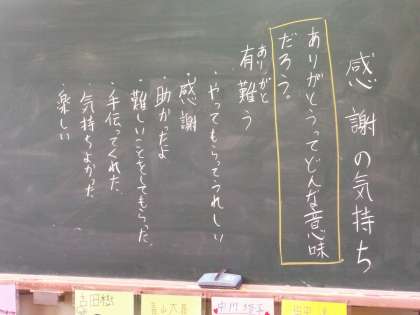 感謝の気持ち
ありがとうってどんな意味
だろう。
ありがと
有難う
・やってもらってうれしい
・感謝
・助かったよ
・難しいことをしてもらった
・手伝ってくれた
気持ちよかった
・楽しい